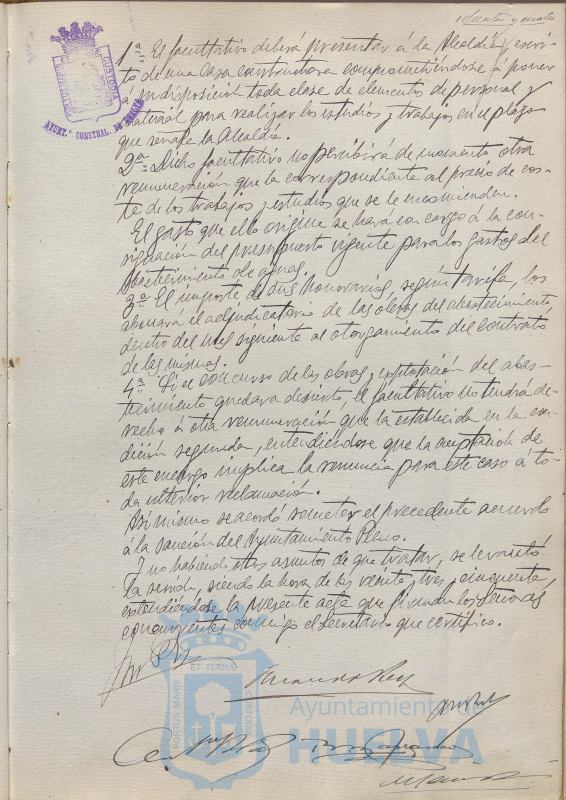 ochenta y ocho
AYUNT.º CONSTNAL. DE
1.ª- El facultativo deberá presentar á la Alcaldía, escri-
to de una Casa constructora comprometiéndose á poner
á su disposición toda clase de elementos de personal y
material para realizar los estudios y trabajos en el plazo
que señale la Alcaldía.
2.ª- Dicho facultativo no percibirá de momento otra
remuneración que la correspondiente al precio de cos-
te de los trabajos y estudios que se le encomienden.
El gasto que ello origine se hará con cargo á la con-
signación del presupuesto vigente para los gastos del
abastecimiento de aguas.
3.ª- El importe de sus honorarios, según tarifa, los
abonará el adjudicatario de las obras del abastecimiento
dentro del mes siguiente al otorgamiento del contrato
de las mismas.
4.ª- Si el concurso de las obras y explotación del abas-
tecimiento quedara desierto, el facultativo no tendrá de-
recho á otra remuneración que la establecida en la con-
dición segunda, entendiéndose que la aceptación de
este encargo implica la renuncia para este caso á to-
da ulterior reclamación.
Así mismo se acordó someter el precedente acuerdo
á la sanción del Ayuntamiento Pleno.
Y no habiendo otros asuntos de que tratar, se levantó
la sesión, siendo la hora de las veinte y tres y cincuenta,
extendiéndose la presente acta que firman los Señores
concurrentes conmigo el Secretario que certifico.
ET TERRÆ
PORTUS MARIS
CUSTODIA
Ayuntamiento de
HUELVA